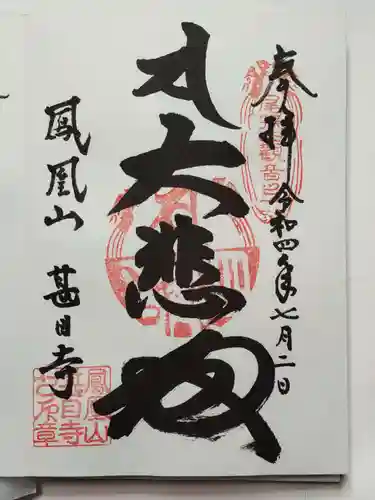 奉拝
令和四年七月二日
大悲殿
鳳凰山
甚目寺
尾張四観音
鳳凰山
甚目寺